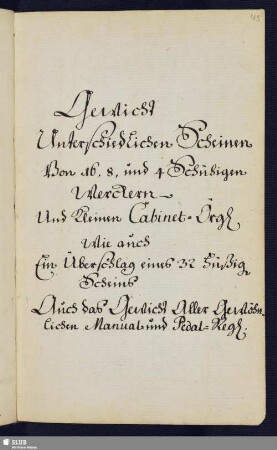 45
Gewicht
Unterschiedlichen Scheinen
Von 16, 8, und 4 Schuhigen
Wercken
Und Kleinen Cabinet-Orgl
Wie auch
Ein Überschlag eines 32 Fußig
Scheins
Auch das Gewicht Aller Gewöhn
lichen Manual und Pedal-Regl.
SLUB
Wir führen Wissen.